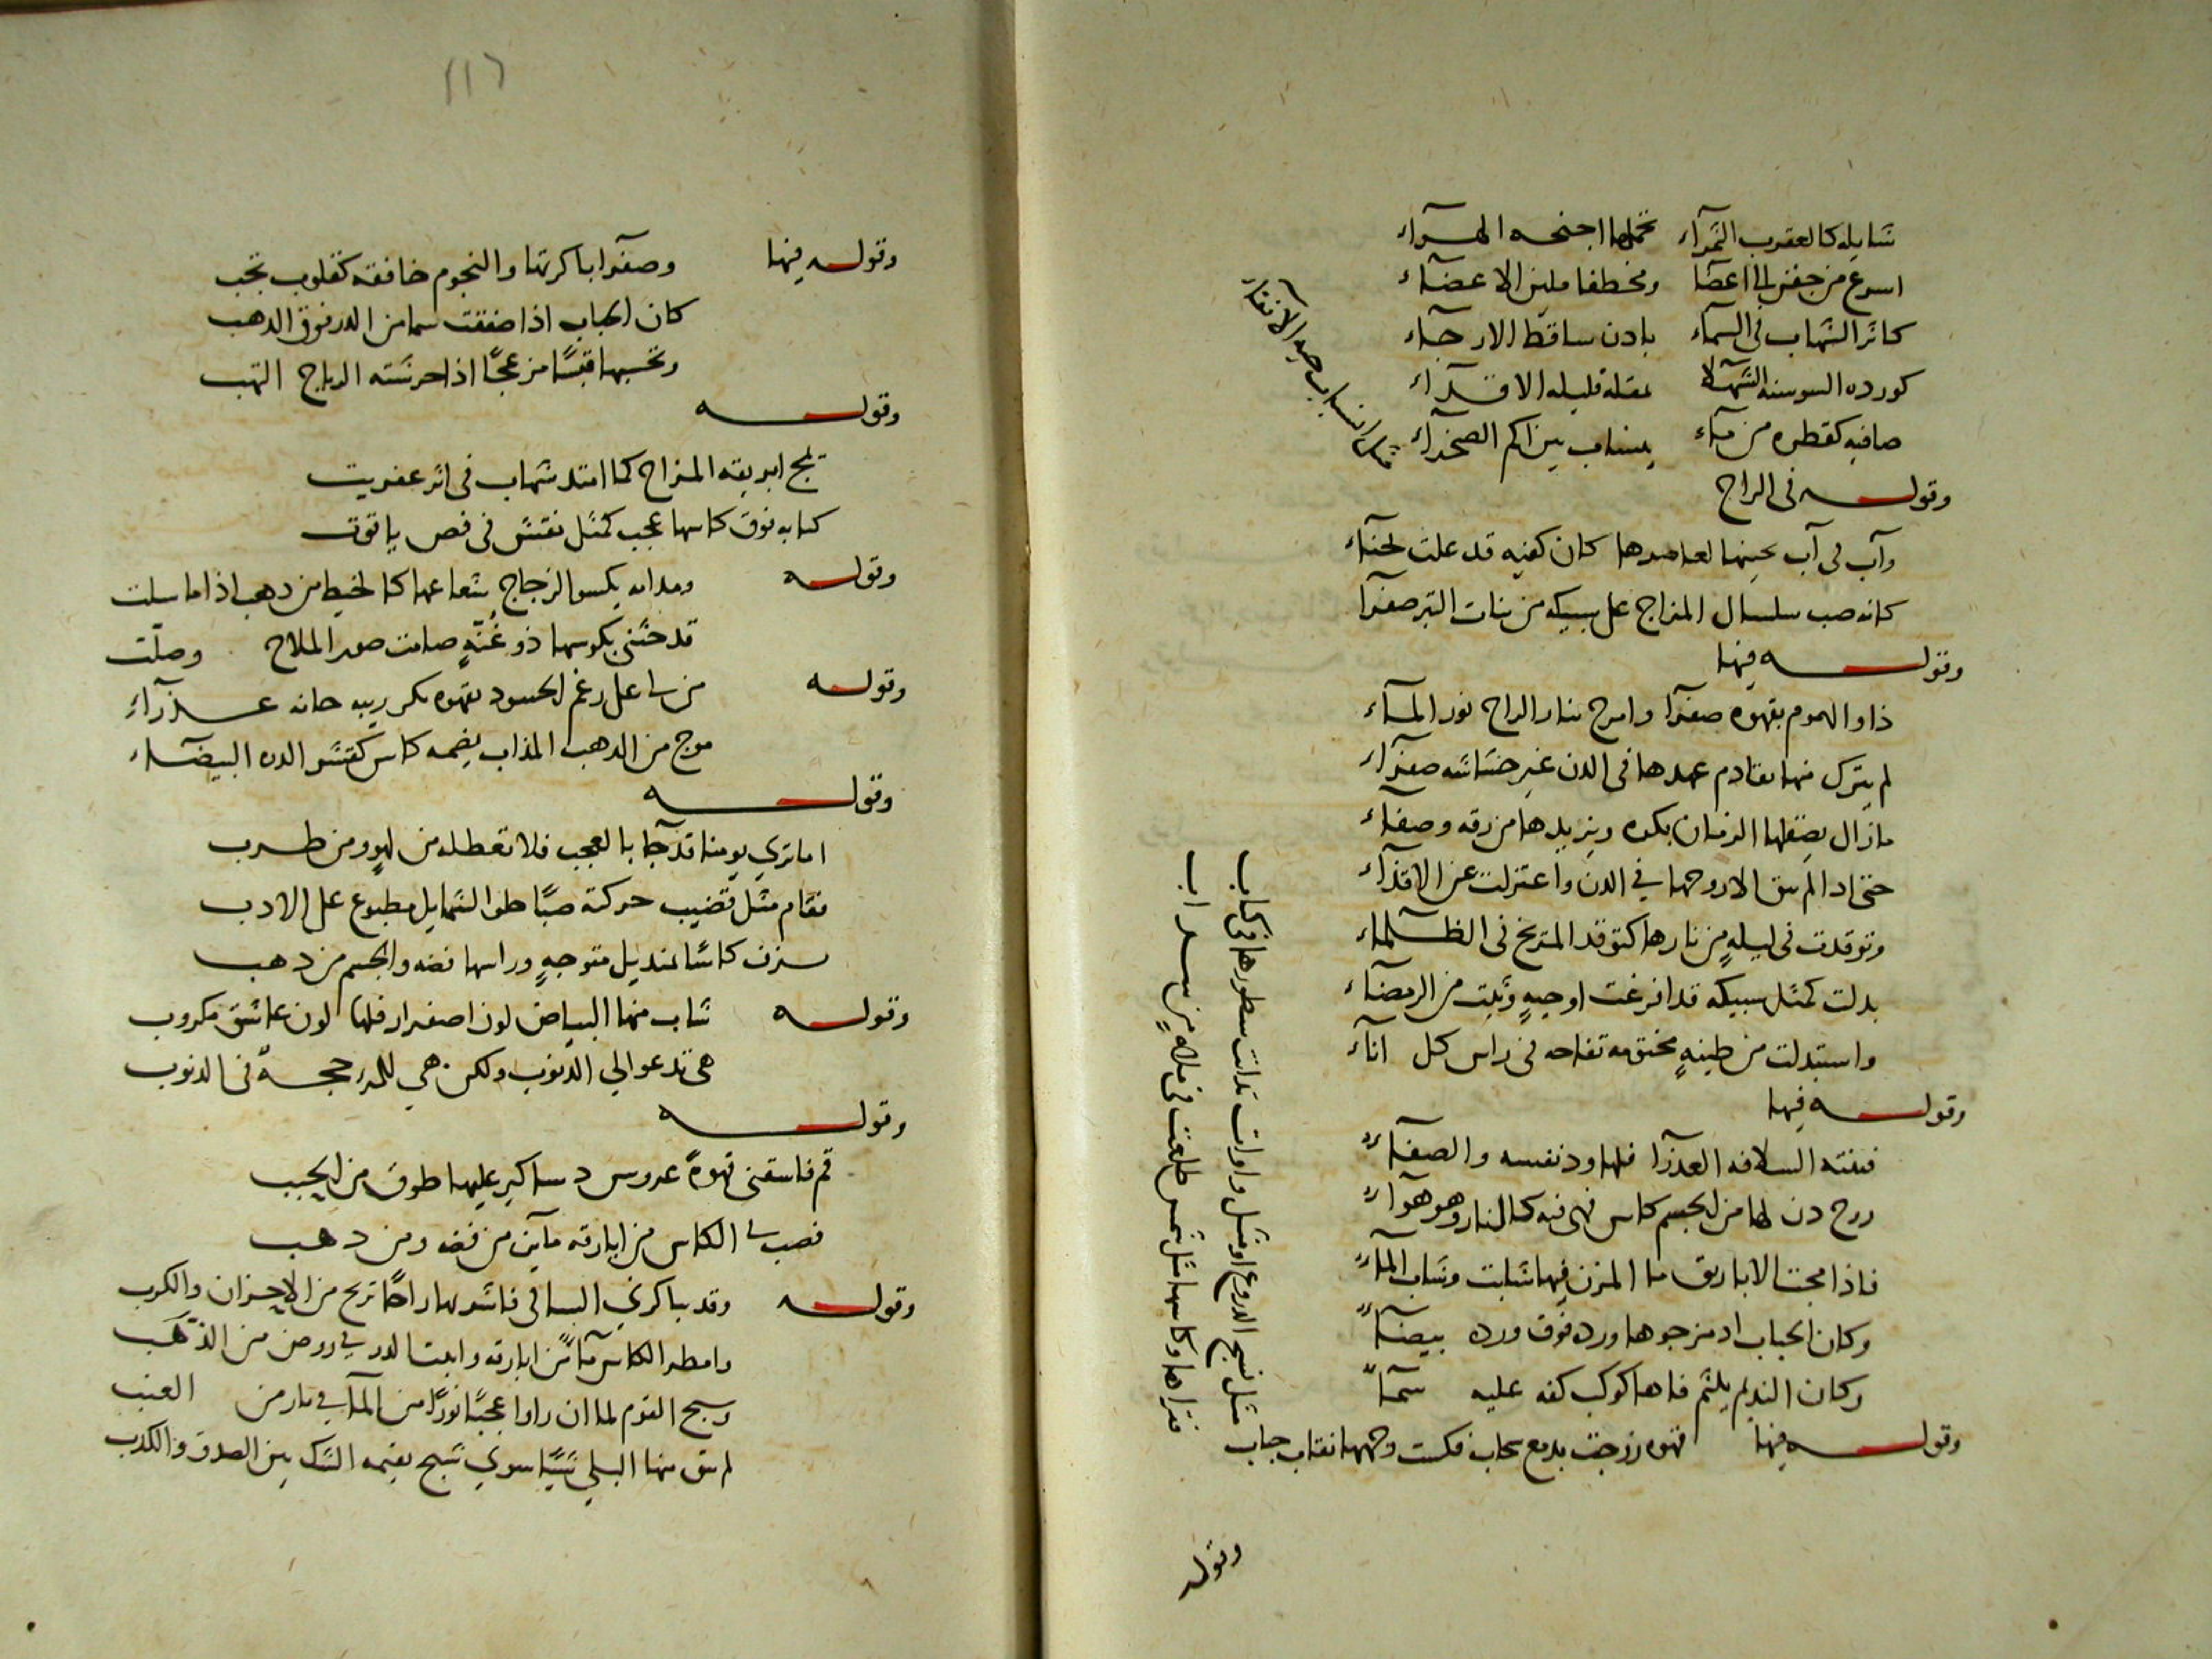 شايله كالعقرب السمراء تحملها اجنحه الهواء
اسرع من جفن الى اعضا ومخطفا ملين الاعضاء
كاثر الشهاب في السماء بادن ساقط الارجاء
كورده السوسنه الشهلا بمقله قليله الاقذاء
صافيه كقطره من ماء ينساب بين اكم الصحراء
مثل انسياب حيه الانقاء
وقوله في الراح
وآب في آب يجنيها لعاصرها كان كفيه قد علت بحناء
كانه صب سلسال المزاج على سبيكه من بنات التبر صفرا
وقوله فيها
داو الهموم بقهوه صفرا وامزج بنار الراح نور الماء
لم يترك منها تقادم عهدها في الدن غير حشاشه صفراء
مازال يصقلها الزمان بكره ويزيدها من رقه وصفاء
حتى اذا لم يبق الا روحها في الدن واعتزلت عن الاقذاء
وتوقدت في ليلةٍ من نارها كتوقد المريخ في الظلماء
بدلت كمثل سبيكه قد افرغت او حيةٍ وثبت من الرمضاء
واستبدلت من طينةٍ مختومه تفاحه في راس كل اناء
وقوله فيها
فتنته السلافه العذرا فلها ود نفسه والصفاء
روح دن لها من الجسم كاس فهى فيه كالنار وهو هواء
فاذا مجت الاباريق ما المزن فيها شابت وشاب الماء
وكان الحباب اذ مزجوها ورده فوق ورده بيضاء
وكان النديم يلثم فاها كوكب كفه عليه سماء
وقوله فيها قهوه زوجت بدمع سحاب فكست وجهها نقاب حباب
مثل نسج الدروع او مثل واوات تدانت سطورها في كتاب
فتراها وكاسها مثل شمس طلعت في ملاةٍ من سراب
وقوله
٢١٦
وقوله فيها وصفرا باكرتها والنجوم خافقه كقلوب تجب
كان الحباب اذا صفقت سما من الدر فوق الذهب
وتحسبها قبسًا من عجًا اذا حرشته الرياح التهب
وقوله
تمج ابريقه المزاج كما امتد شهاب في اثر عفريت
كتابه فوق كاسها عجب كمثل نقش في فص ياقوت
وقوله ومدامه يكسو الزجاج شعاعها كالخيط من ذهب اذا ما سلت
قد حثني بكوسها ذو غنةٍ صامت صور الملاح وصلّت
وقوله من لى على رغم الحسود بقهوه بكر ربيبه حانه عذراء
موج من الذهب المذاب يضمه كاس كقشر الدره البيضاء
وقوله
اما ترى يومنا قد جا بالعجب فلا تعطله من لهوٍ ومن طرب
فقام مثل قضيب حركته صبًا حلو الشمايل مطبوع على الادب
يزف كاسًا بمنديل متوجهٍ وراسها فضه والجسم من ذهب
وقوله شاب منها البياض لون اصفرار فلها لون عاشق مكروب
هى تدعو الي الذنوب ولكن هي للمرء حجةٌ في الذنوب
وقوله
قم فاسقنى قهوةً عروس دساكير عليها طوق من الحبب
فصب لى الكاس من ابارقه مآين من فضه ومن ذهب
وقوله وقد يباكرني الساقى فاشربها راحًا تريح من الاحزان والكرب
وامطر الكاس مآءً من ابارقه وانبت الدر في روض من الذهب
وسبح القوم لما ان راوا عجبًا نورًا من المآ في نار من العنب
لم يبق منها البلي شيًا سوي شبح يقيمه الشك بين الصدق والكذب